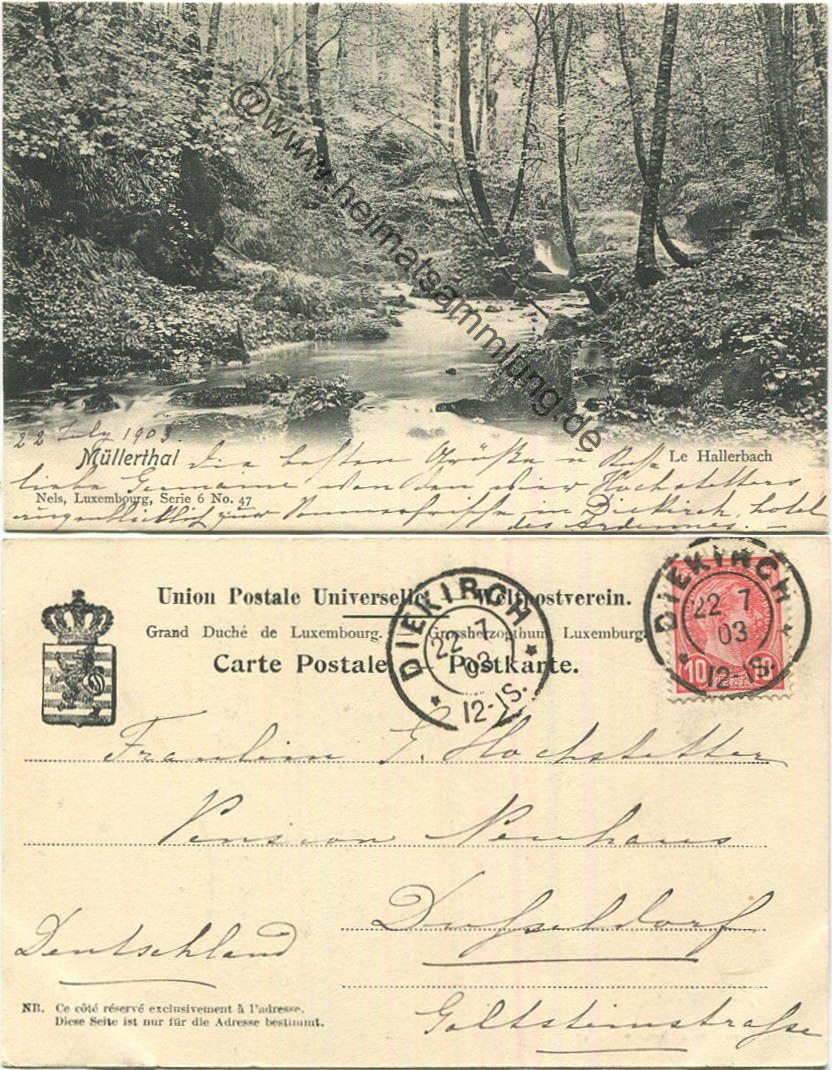 ©www.heimatsammlung.de
22 July 1903.
Müllerthal
Le Hallerbach
die besten Grüße u Kuss
liebe Germaine von den vier Hochstetters
Nels, Luxembourg, Serie 6 No. 47
augenblicklich zur Sommerfrische in Diekirch, hotel
des Ardennes. —
Union Postale Universelle — Weltpostverein.
Grand Duché de Luxembourg. — Grossherzogthum Luxemburg.
Carte Postale — Postkarte.
DIEKIRCH
22 7
03
12-1S.
DIEKIRCH
22 7
03
12-1S.
10
Fraulein G. Hochstetter
Pension Neuhaus
Dusseldorf
Deutschland
NB. Ce côté réservé exclusivement à l'adresse.
Diese Seite ist nur für die Adresse bestimmt.
Goltsteinstraße